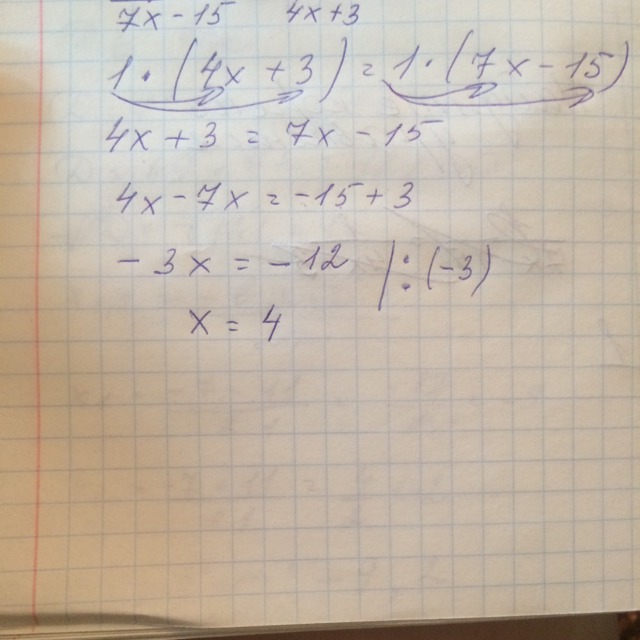 7x - 15 4x + 3
1 · (4x + 3) = 1 · (7x - 15)
4x + 3 = 7x - 15
4x - 7x = -15 + 3
- 3x = -12 | : (-3)
x = 4